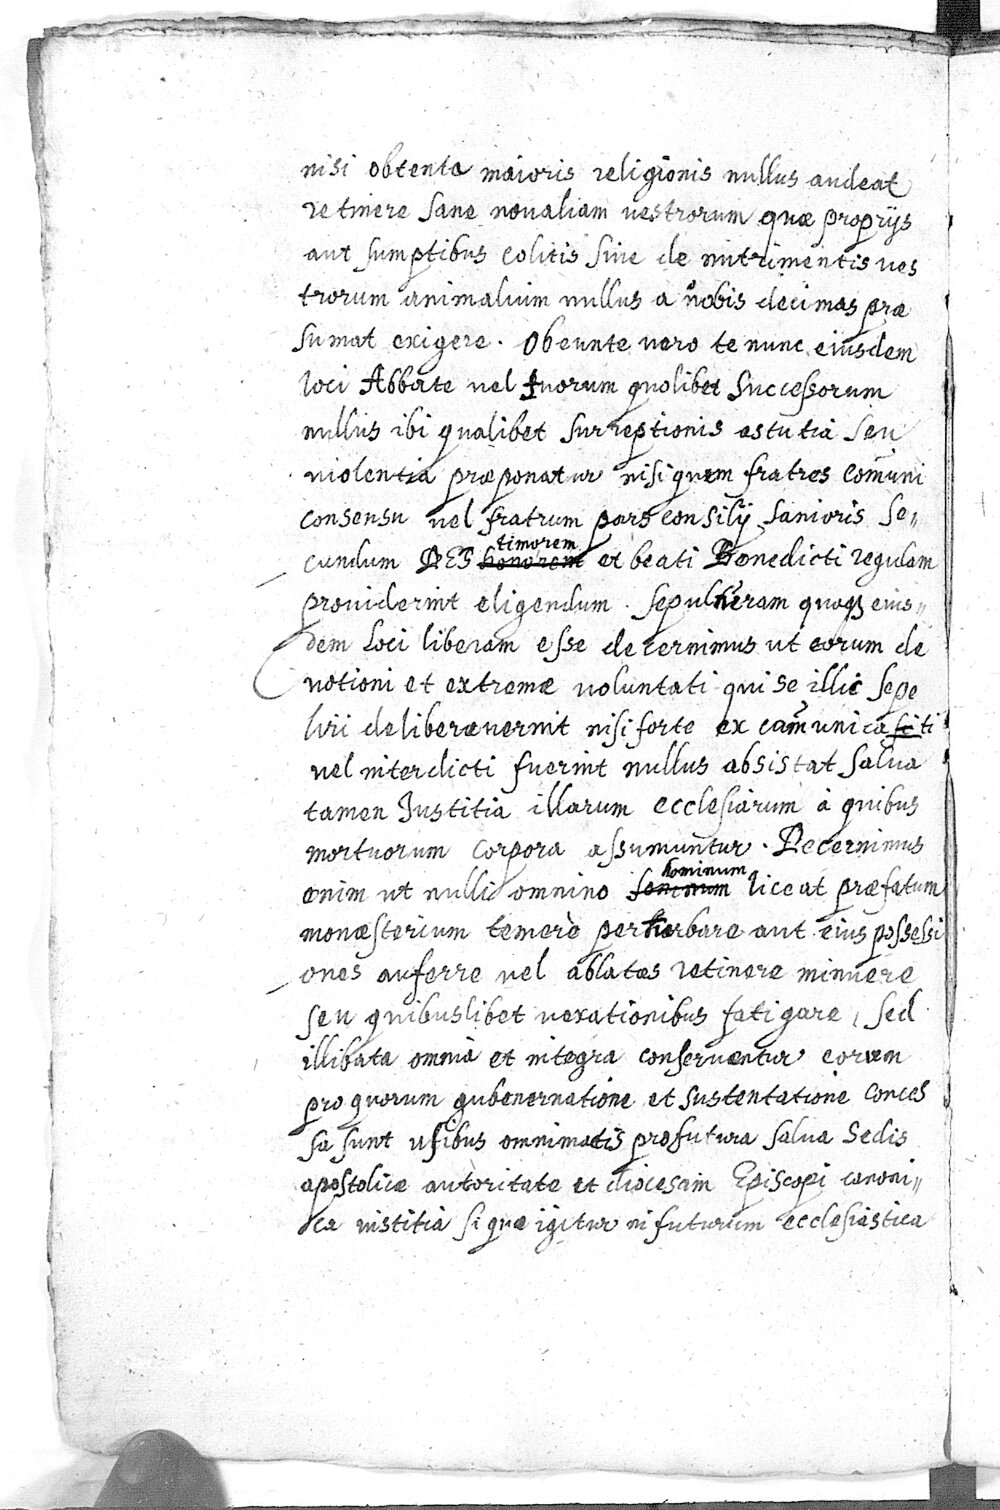 nisi obtenta maioris religionis nullus audeat
retinere sane novaliam vestrorum quæ proprijs
aut sumptibus colitis sive de nutrimentis ves
trorum animalium nullus a nobis decimas præ
sumat exigere. Obeunte vero te nunc eiusdem
loci Abbate vel tuorum quolibet Successorum
nullus ibi qualibet surreptionis astutia seu
violentia præponatur nisi quem fratres Comuni
consensu vel fratrum pars consilij sanioris se„
cundum DEI timorem honorem et beati Benedicti regulam
providerint eligendum. sepulturam quoqȝ eius„
dem Loci liberam esse decernimus ut eorum de
votioni et extremæ voluntati qui se illic sepe
liri deliberaverint nisi forte ex camunica fi ti
vel interdicti fuerint nullus absistat salva
tamen Justitia illarum ecclesiarum à quibus
mortuorum corpora assumuntur. Decernimus
enim ut nulli omnino hominum liceat præfatum
monæsterium temerè perturbare aut eius possessi
ones auferre vel ablatas retinere minuere
seu quibuslibet vexationibus fatigare, sed
illibata omnia et integra conserventur eorum
pro quorum gubenernatione et sustentatione conces
sa sunt usibus omnimodis profutura salva Sedis
apostolicæ autoritate et diocesam Episcopi canoni„
ca iustitia si qua igitur in futurum ecclesiastica